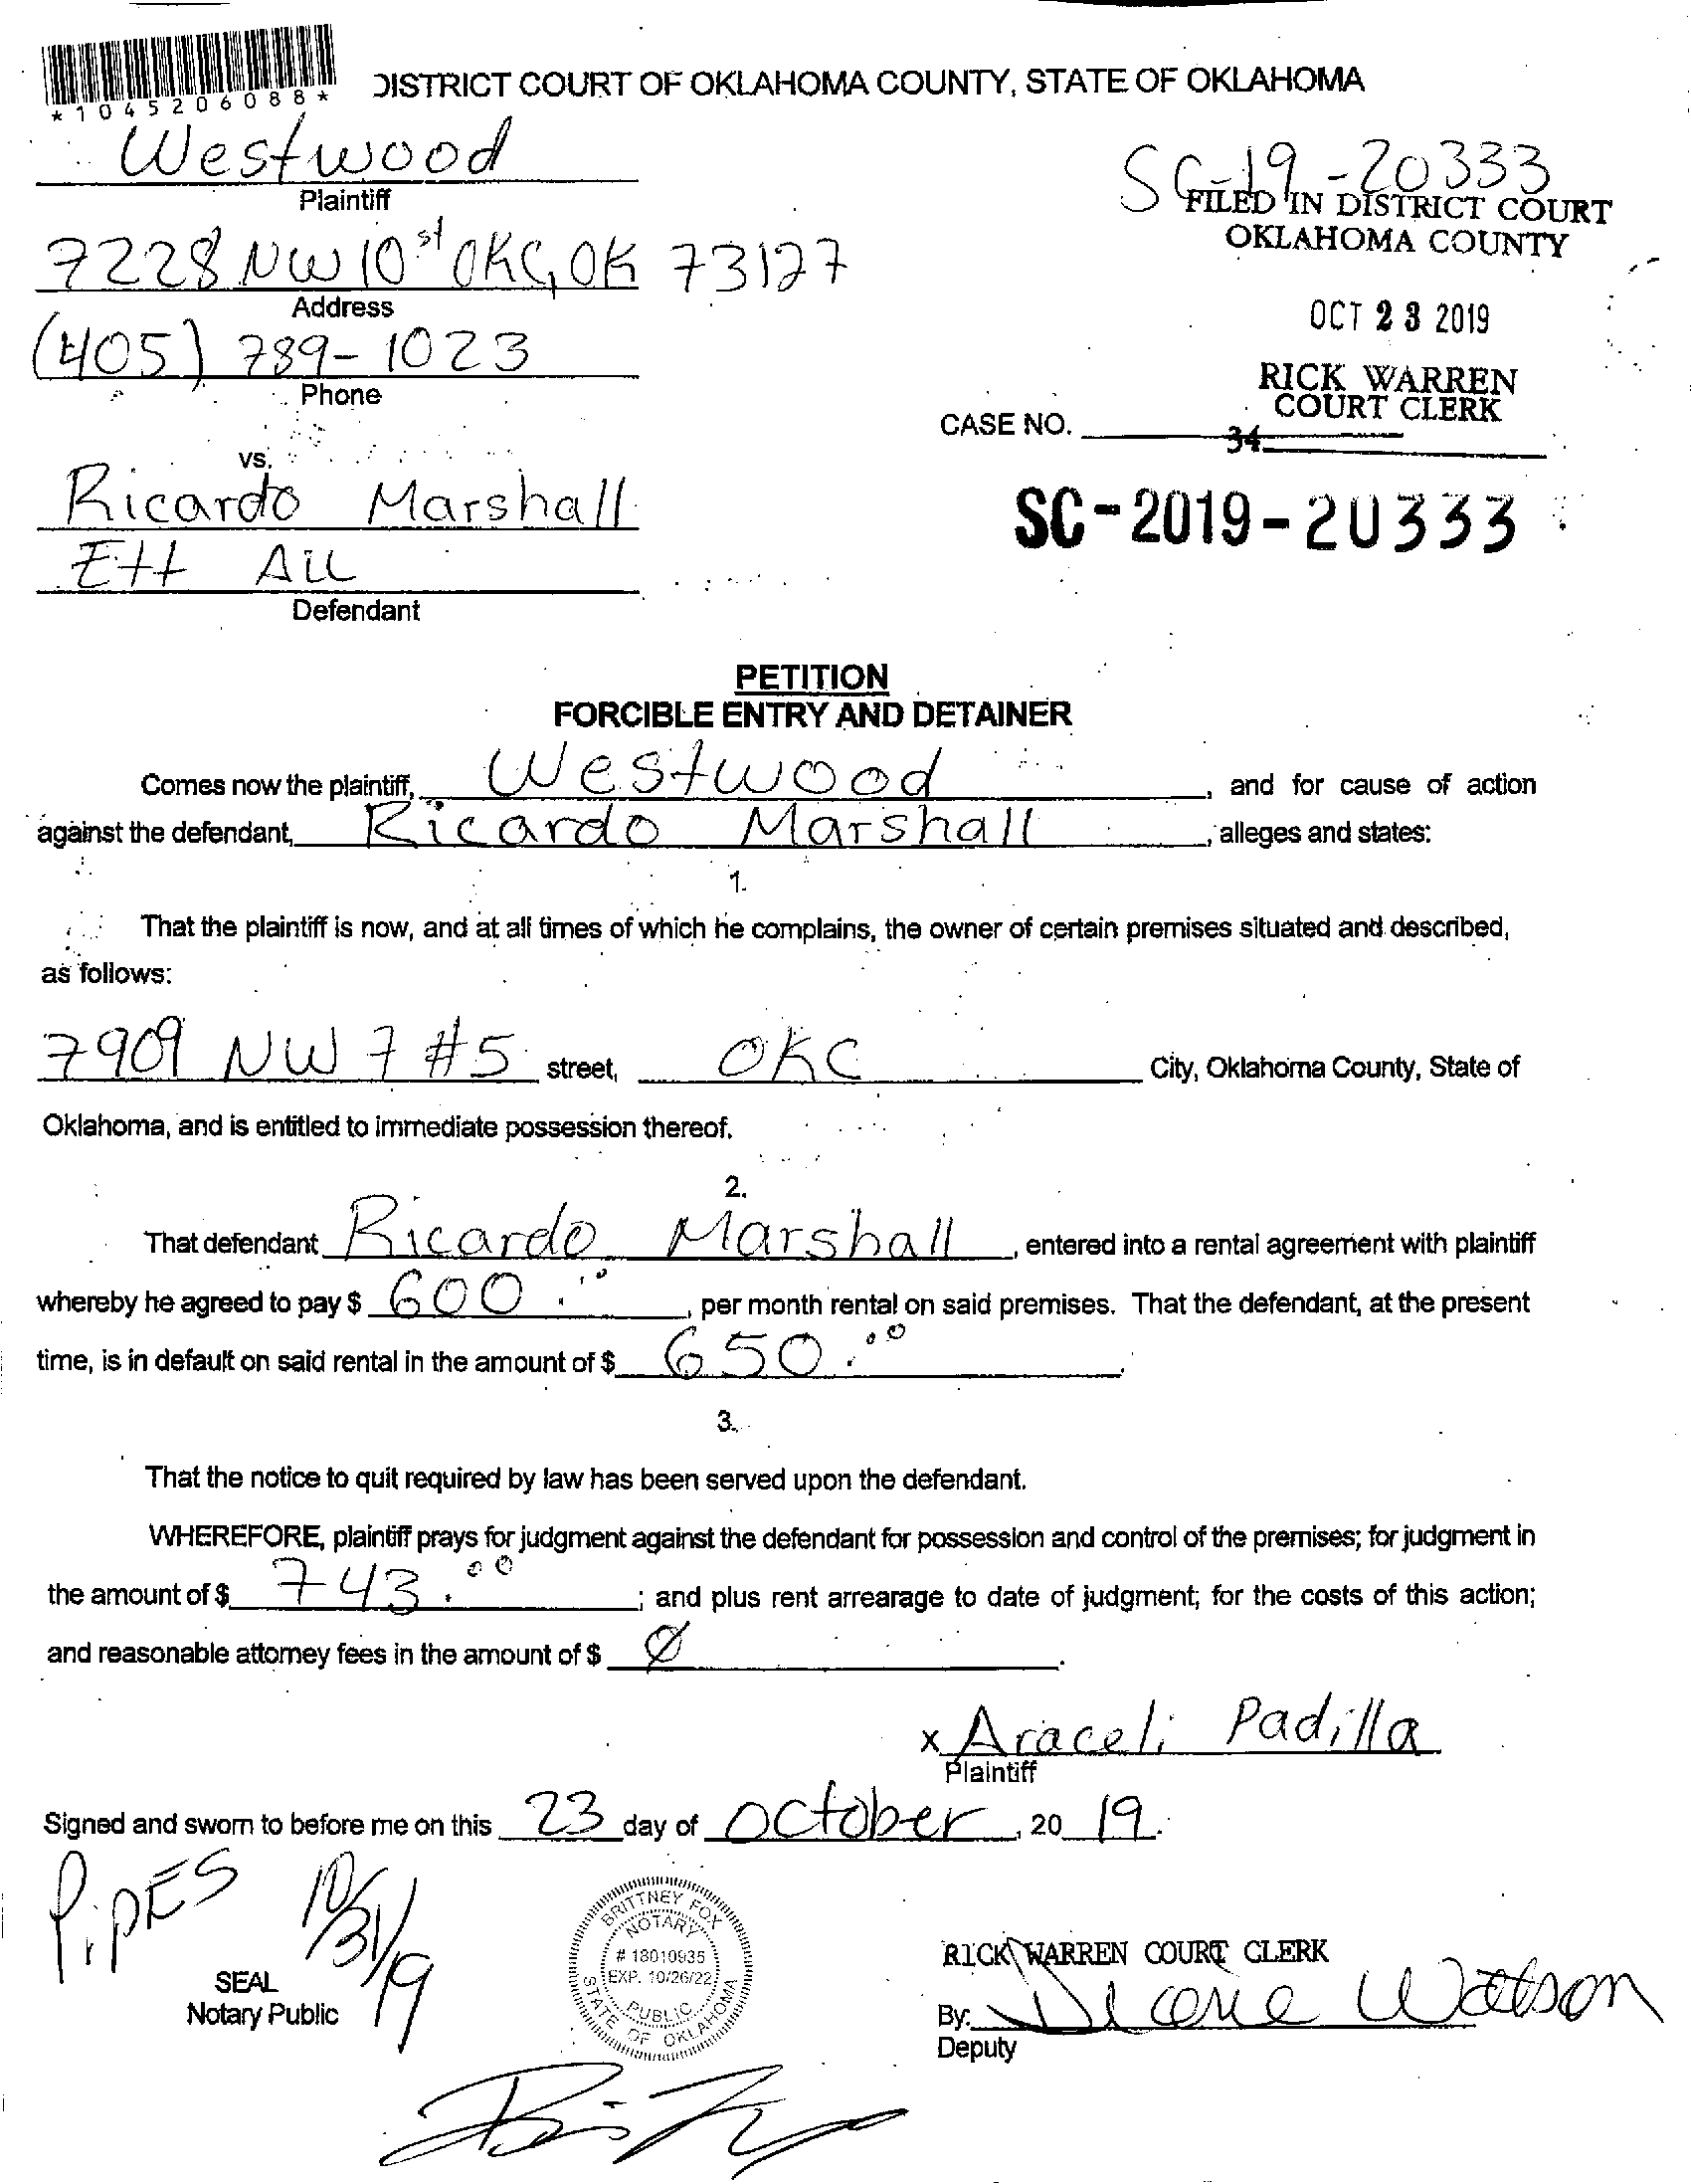 *1045206088*
DISTRICT COURT OF OKLAHOMA COUNTY, STATE OF OKLAHOMA
Westwood
Plaintiff
SC-19-20333
FILED IN DISTRICT COURT
OKLAHOMA COUNTY
7228 NW 10st OKC, OK 73127
Address
OCT 23 2019
(405) 789-1023
Phone
RICK WARREN
COURT CLERK
CASE NO.
34
vs.
Ricardo Marshall
SC-2019-20333
Ett All
Defendant
PETITION
FORCIBLE ENTRY AND DETAINER
Comes now the plaintiff, Westwood, and for cause of action
against the defendant, Ricardo Marshall, alleges and states:
1.
That the plaintiff is now, and at all times of which he complains, the owner of certain premises situated and described,
as follows:
7909 NW 7 #5 street, OKC City, Oklahoma County, State of
Oklahoma, and is entitled to immediate possession thereof.
2.
That defendant Ricardo Marshall, entered into a rental agreement with plaintiff
whereby he agreed to pay $ 600.00, per month rental on said premises. That the defendant, at the present
time, is in default on said rental in the amount of $ 650.00.
3.
That the notice to quit required by law has been served upon the defendant.
WHEREFORE, plaintiff prays for judgment against the defendant for possession and control of the premises; for judgment in
the amount of $ 743.00; and plus rent arrearage to date of judgment; for the costs of this action;
and reasonable attorney fees in the amount of $ Ø.
x Araceli Padilla
Plaintiff
Signed and sworn to before me on this 23 day of October, 20 19.
PipES 10/31/19
BRITTNEY FOX
NOTARY
# 18010935
EXP. 10/26/22
PUBLIC
STATE OF OKLAHOMA
SEAL
Notary Public
RICK WARREN COURT CLERK
By: Watson
Deputy